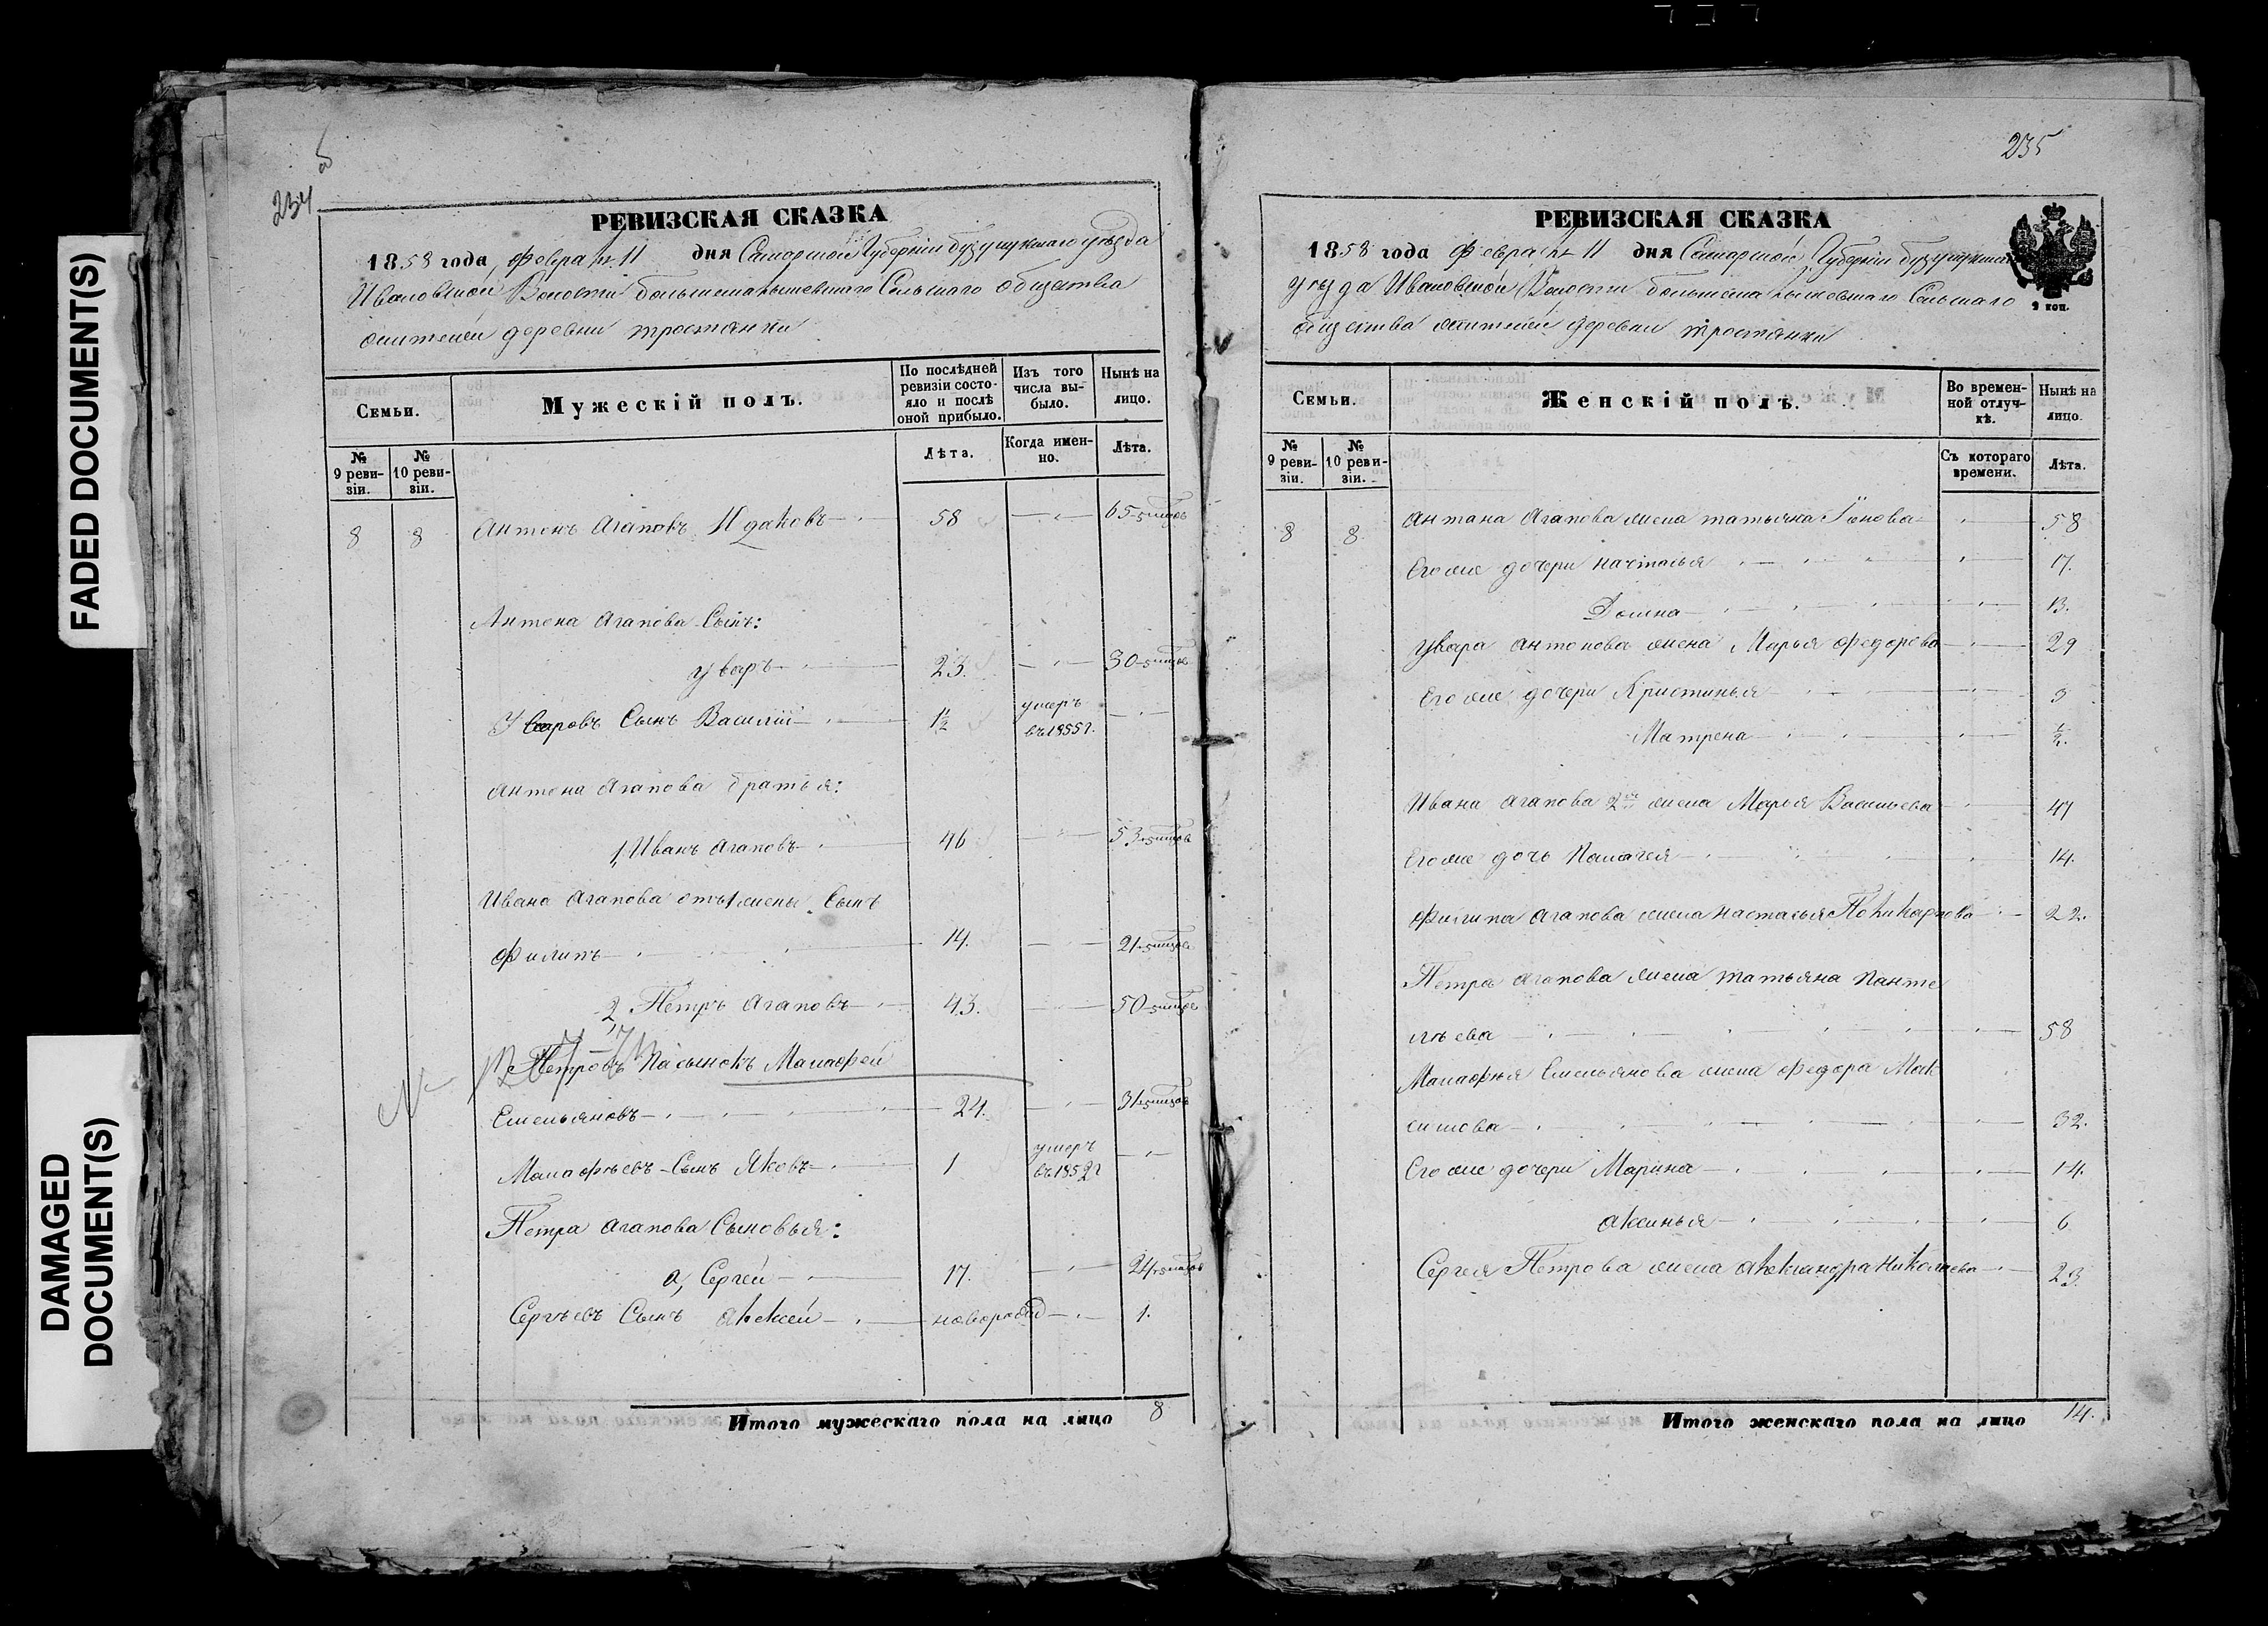 FADED DOCUMENT(S)
DAMAGED
DOCUMENT(S)
234
РЕВИЗСКАЯ СКАЗКА
1858 года февраля 11 дня Самарской Губерніи бузулукскаго уѣзда
Ивановской Волости Сельскаго общества
жителей деревни тростянки
Семьи.
Мужескій полъ.
По послѣдней ревизіи состояло и послѣ оной прибыло.
Изъ того числа выбыло.
Нынѣ на лицо.
№ 9 ревизіи.
№ 10 ревизіи.
Лѣта.
Когда именно.
Лѣта.
8 8 Антонъ Агаповъ 58 65
Антона Агапова Сынъ:
Уваръ 23. 30
Уваровъ Сынъ Василій 1½ умеръ въ 1855 г.
Антона Агапова братья:
1, Иванъ Агаповъ 46 53
Ивана Агапова отъ 1 жены Сынъ
Филипъ 14. 21
2, Петръ Агаповъ 43. 50
Петровъ Пасынокъ Малафей
Емельяновъ 24. 31
Малафѣевъ Сынъ Яковъ 1 умеръ въ 1852 г
Петра Агапова Сыновья:
а, Сергей 17. 24
Сергѣевъ Сынъ Алексей новорожд 1.
Итого мужескаго пола на лицо 8
235
РЕВИЗСКАЯ СКАЗКА
1858 года февраля 11 дня Самарской Губерніи бузулукскаго
уѣзда Ивановской Волости Сельскаго
общества жителей деревни тростянки
2 коп.
Семьи.
Женскій полъ.
Во временной отлучкѣ.
Нынѣ на лицо.
№ 9 ревизіи.
№ 10 ревизіи.
Съ котораго времени.
Лѣта.
8 8 Антона Агапова жена татьяна Іонова 58
Его же дочери Наталья 17.
Домна 13.
Увара Антонова жена Марья Федорова 29
Его же дочери Христинья 3
Матрена ½.
Ивана Агапова 2я жена Марья Васильева 47
Его же дочь Палагея 14.
Филипа Агапова жена Настасья Поликарпова 22.
Петра Агапова жена татьяна Панте
лѣева 58
Малафѣя Емельянова жена Федора Мак
симова 32.
Его же дочери Марина 14.
Аксинья 6
Сергея Петрова жена Александра Николаева 23.
Итого женскаго пола на лицо 14.